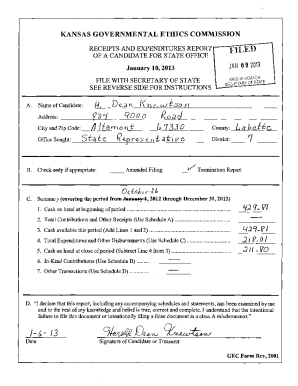 KANSAS GOVERNMENTAL ETHICS COMMISSION
RECEIPTS AND EXPENDITURES REPORT
OF A CANDIDATE FOR STATE OFFICE
FILED
January 10, 2013
JAN 09 2013
FILE WITH SECRETARY OF STATE
SEE REVERSE SIDE FOR INSTRUCTIONS
KRIS W. KOBACH
SECRETARY OF STATE
A. Name of Candidate: H. Dean Knewtson
Address: 984 9000 Road
City and Zip Code: Altamont 67330 County: Labette
Office Sought: State Representative District: 7
B. Check only if appropriate: Amended Filing ✓ Termination Report
October 26
C. Summary (covering the period from January 1, 2012 through December 31, 2012)
1. Cash on hand at beginning of period 429.81
2. Total Contributions and Other Receipts (Use Schedule A) —
3. Cash available this period (Add Lines 1 and 2) 429.81
4. Total Expenditures and Other Disbursements (Use Schedule C) 218.01
5. Cash on hand at close of period (Subtract Line 4 from 3) 211.80
6. In-Kind Contributions (Use Schedule B) —
7. Other Transactions (Use Schedule D) —
D. "I declare that this report, including any accompanying schedules and statements, has been examined by me and to the best of my knowledge and belief is true, correct and complete. I understand that the intentional failure to file this document or intentionally filing a false document is a class A misdemeanor."
1-6-13 Harold Dean Knewtson
Date Signature of Candidate or Treasurer
GEC Form Rev, 2001